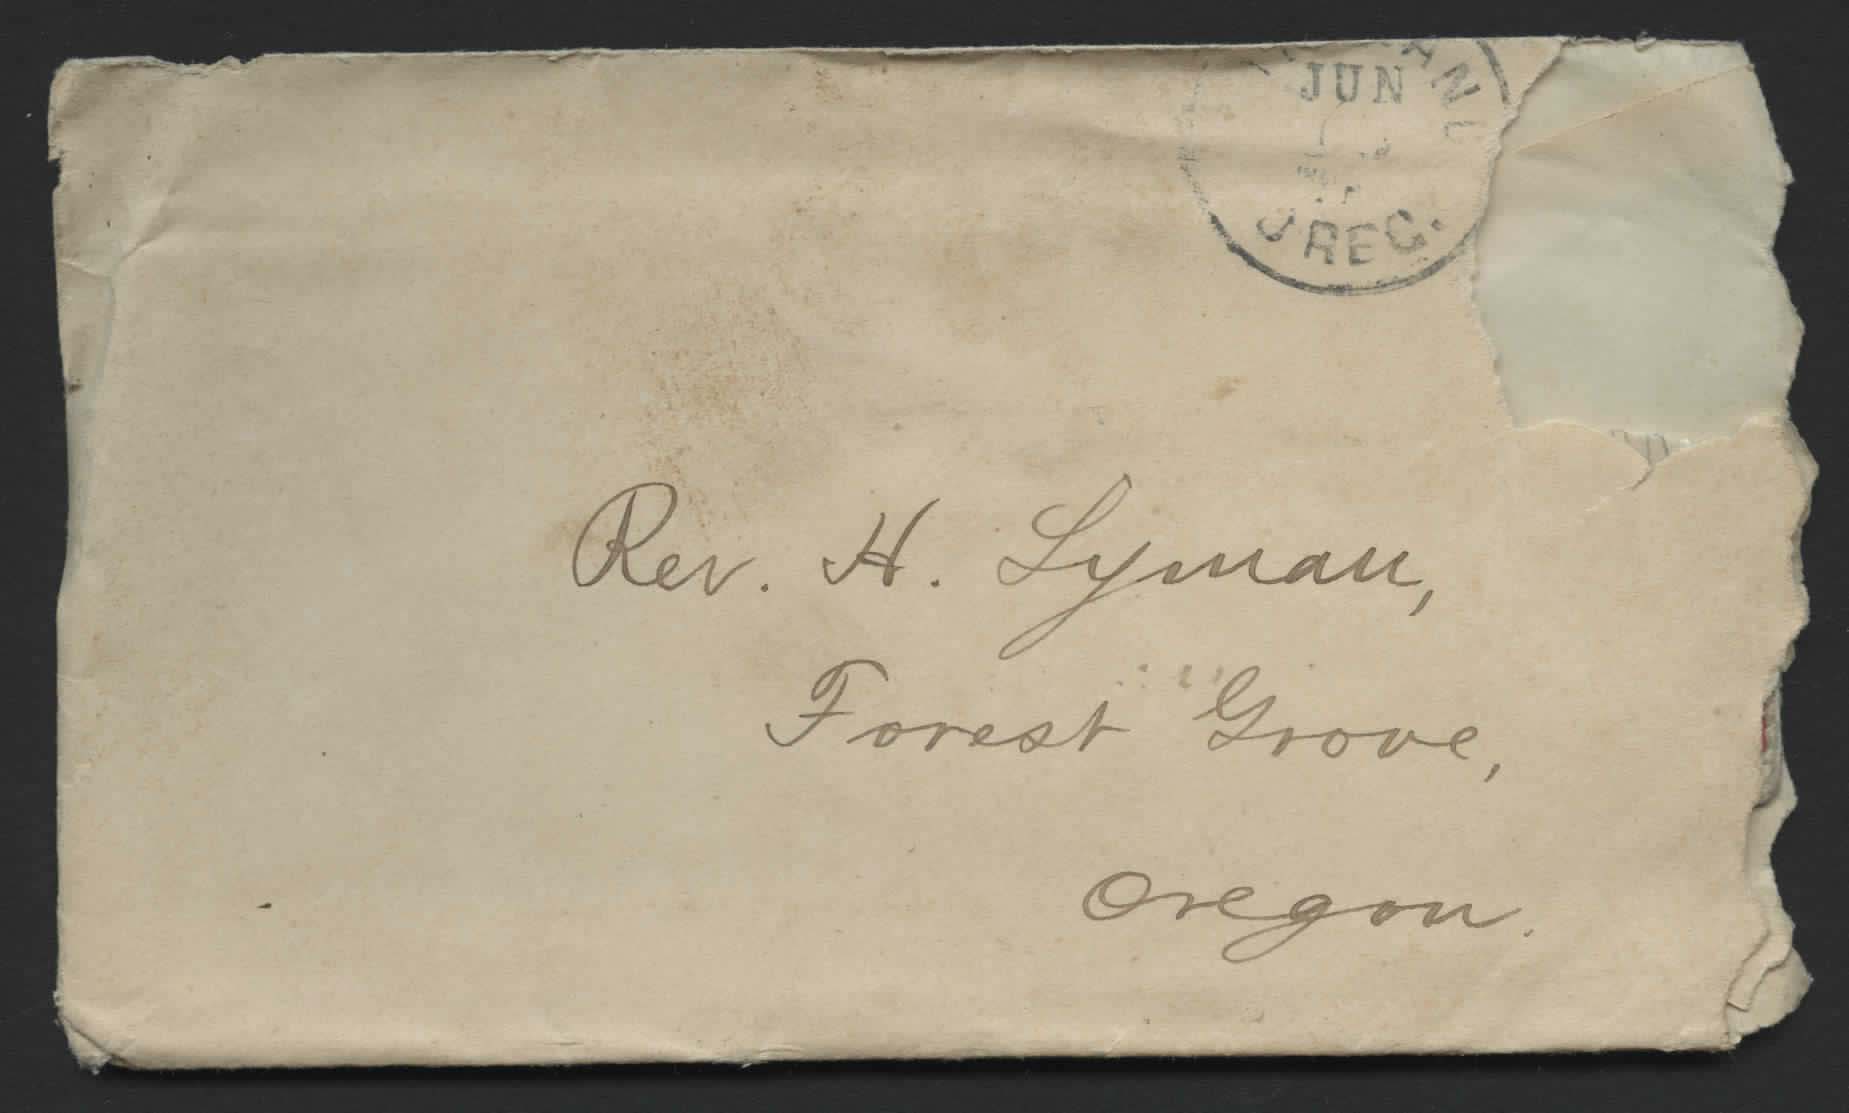 JUN
OREG.
Rev. H. Lyman,
Forest Grove,
Oregon.